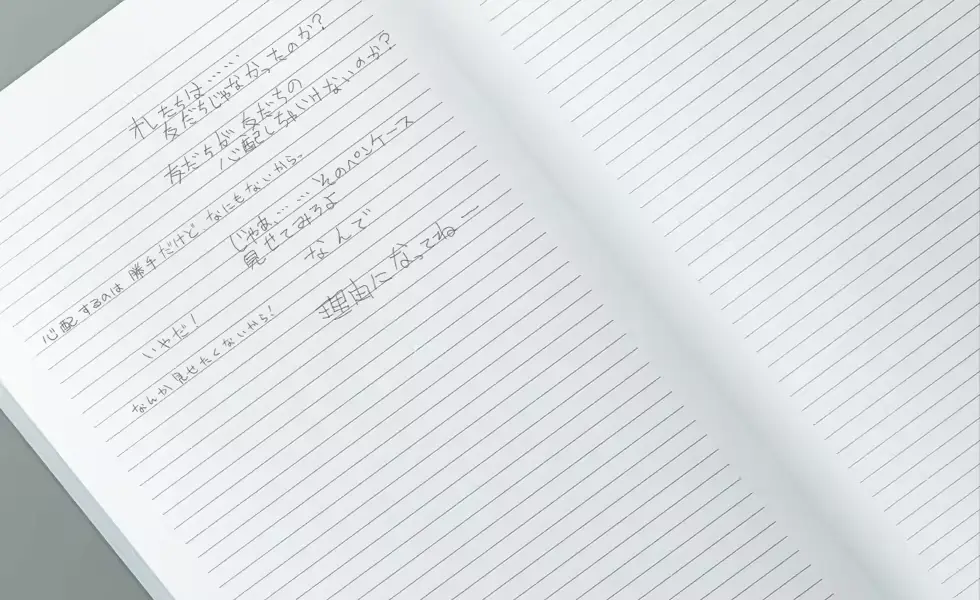 私たちは……
友だちじゃなかったのか?
友だちが友だちの
心配しちゃいけないのか?
心配するのは勝手だけど、なにもないから。
じゃあ、……そのペンケース
見せてみろよ
いやだ!
なんで
なんか見せたくないから!
理由になってねー